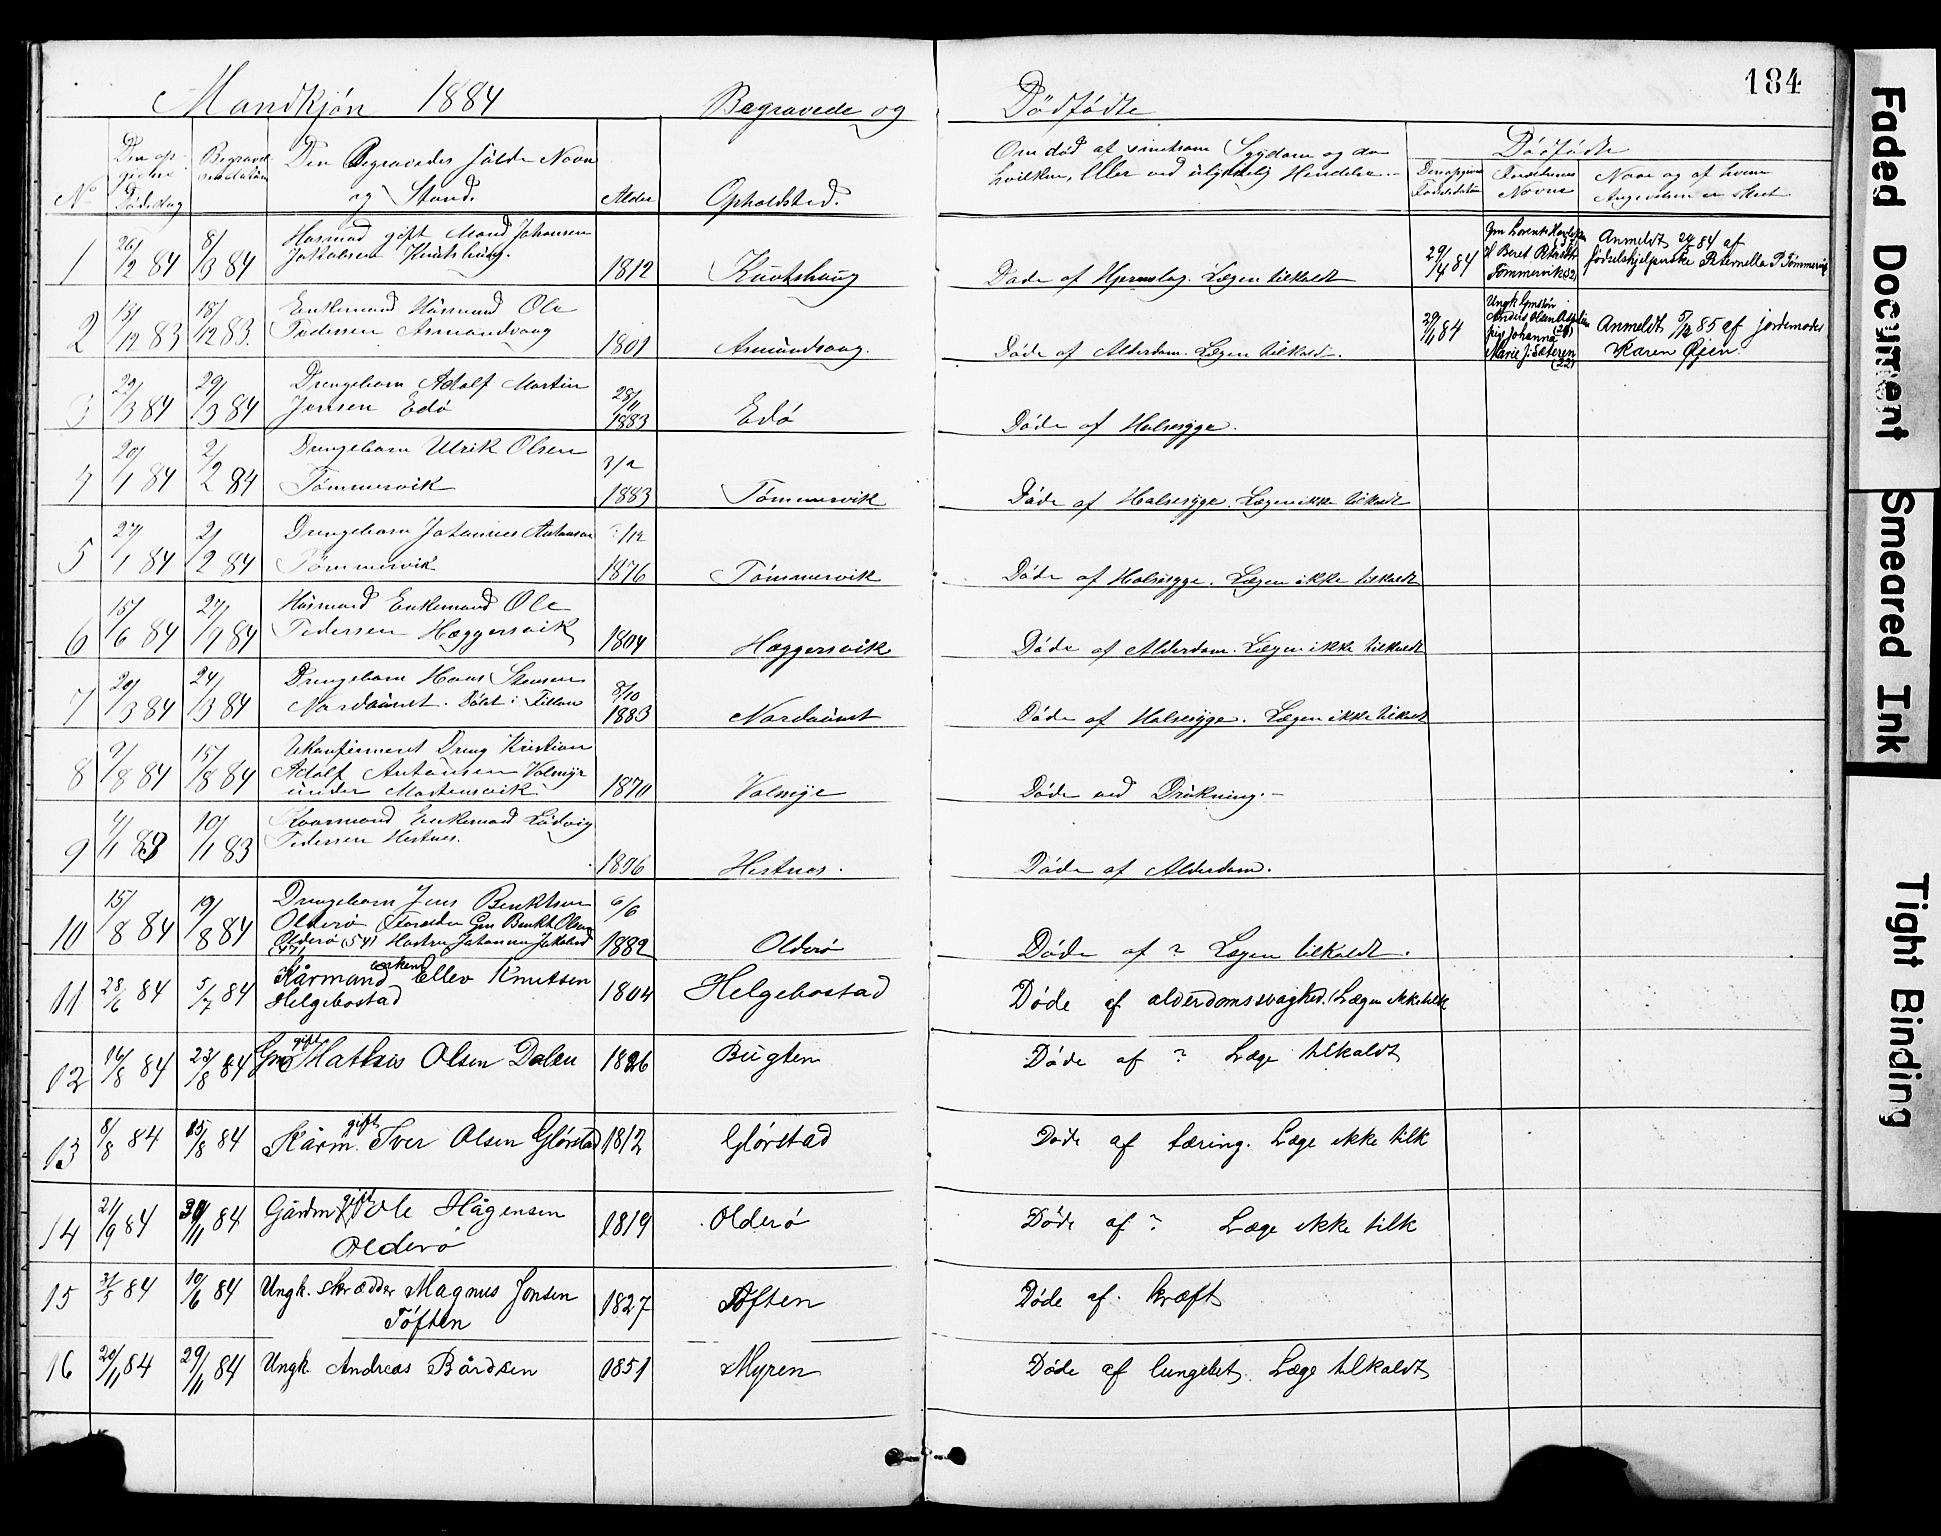 184
Mandkjøn 1884 Begravede og Dödfødte
No Den opgivne Dödsdag Begravelsesdatum Den Begravedes fulde Navn og Stand. Alder Opholdsted. Om død af smitsom Sygdom og da hvilken, Eller ved ulykkelig Hendelse. Dödfødte
Den opgivne Fødselsdatum Forældrenes Navne Naar og af hvem Angivelsen er skeet
1 26/2 84 8/3 84 Husmand gift Mand Johansen
Jakobsen Knutshaug. 1812 Knutshaug Døde af Hjerneslag. Lægen tilkaldt 29/4 84 Gm Lorents
H Beret
Tømmervik (32) Anmeldt 84 af
fødselshjelperske Peternella P Tømmervik
2 13/12 83 18/12 83. Enkemand Husmand Ole
Pedersen Asmundvaag 1801 Asmundvaag. Døde af Alderdom. Lægen tilkaldt. 29/11 84 Ungk
Anders Olsen
pige Johanna
Marie J. Sæteren
(22) Anmeldt 5/12 85 af jordemoder
Karen Øien
3 22/3 84 29/3 84 Drengebarn Adolf Martin
Jensen Edø 28/11
1883 Edø Døde af Halsesyge.
4 20/1 84 2/2 84 Drengebarn Ulrik Olsen
Tømmervik 3/2
1883 Tømmervik Døde af Halsesyge. Lægen ikke tilkaldt
5 27/1 84 2/2 84 Drengebarn Johannes Antonsen
Tømmervik /12
1876 Tømmervik Døde af Halsesyge. Lægen ikke tilkaldt
6 15/6 84 27/7 84 Husmand Enkemand Ole
Pedersen Hæggersvik 1804 Hæggersvik Døde af Alderdom. Lægen ikke tilkaldt
7 20/3 84 24/3 84 Drengebarn Hans Stensen
Nordaunet. Døbt i Fillan 8/10
1883 Nordaunet Døde af Halsesyge. Lægen ikke tilkaldt
8 9/8 84 15/8 84 Ukonfirmeret Dreng Kristian
Adolf Antonsen Valmye
under Mastensvik 1870 Valmye Døde ved Drukning.
9 4/1 83 10/1 83 Kaarmand Enkemand Ludvig
Pedersen Hestnes. 1806 Hestnes. Døde af Alderdom.
10 15/8 84 19/8 84 Drengebarn Jens Benktsen
Olderø Forældre Gm Benkt Olsen
Olderø (54) Hustru Johanna Jakobsd
(47) 6/6
1882 Olderø Døde af ? Lægen tilkaldt.
11 28/6 84 5/7 84 Kårmand enkem Ellev Knutsen
Helgebostad 1804 Helgebostad Døde af alderdomssvaghed. Lægen ikke tilk
12 16/8 84 23/8 84 Gm gift Mathias Olsen Dalen 1826 Bugten Døde af ? Læge tilkaldt
13 8/8 84 15/8 84 Kårm. gift Iver Olsen Glørstad 1812 Glørstad Døde af tæring. Læge ikke tilk
14 21/9 84 30/11 84 Gårdm gift Ole Hågensen
Olderø 1819 Olderø Døde af ? Læge ikke tilk
15 31/5 84 10/6 84 Ungk. skrædder Magnus Jonsen
Tøften 1827 Tøften Døde af kræft
16 20/11 84 29/11 84 Ungk. Andreas Bårdsen 1851 Myren Døde af lungebet. Læge tilkaldt
Faded Document
Smeared Ink
Tight Binding